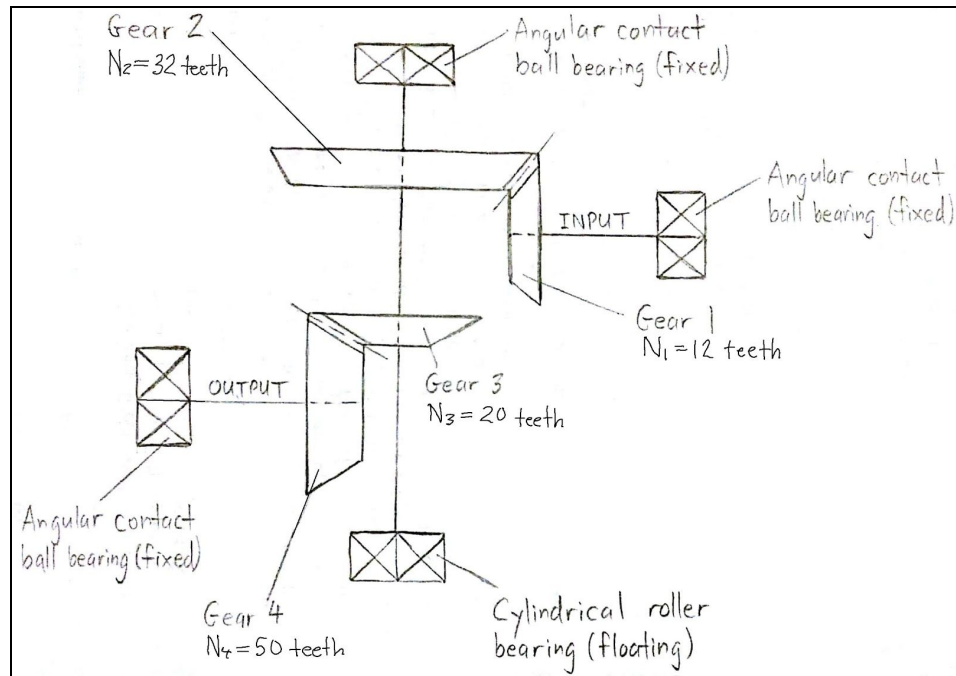 Gear 2
N₂=32 teeth
Angular contact
ball bearing (fixed)
Angular contact
ball bearing (fixed)
INPUT
Gear 1
N₁=12 teeth
OUTPUT
Gear 3
N₃=20 teeth
Angular contact
ball bearing (fixed)
Gear 4
N₄=50 teeth
Cylindrical roller
bearing (floating)